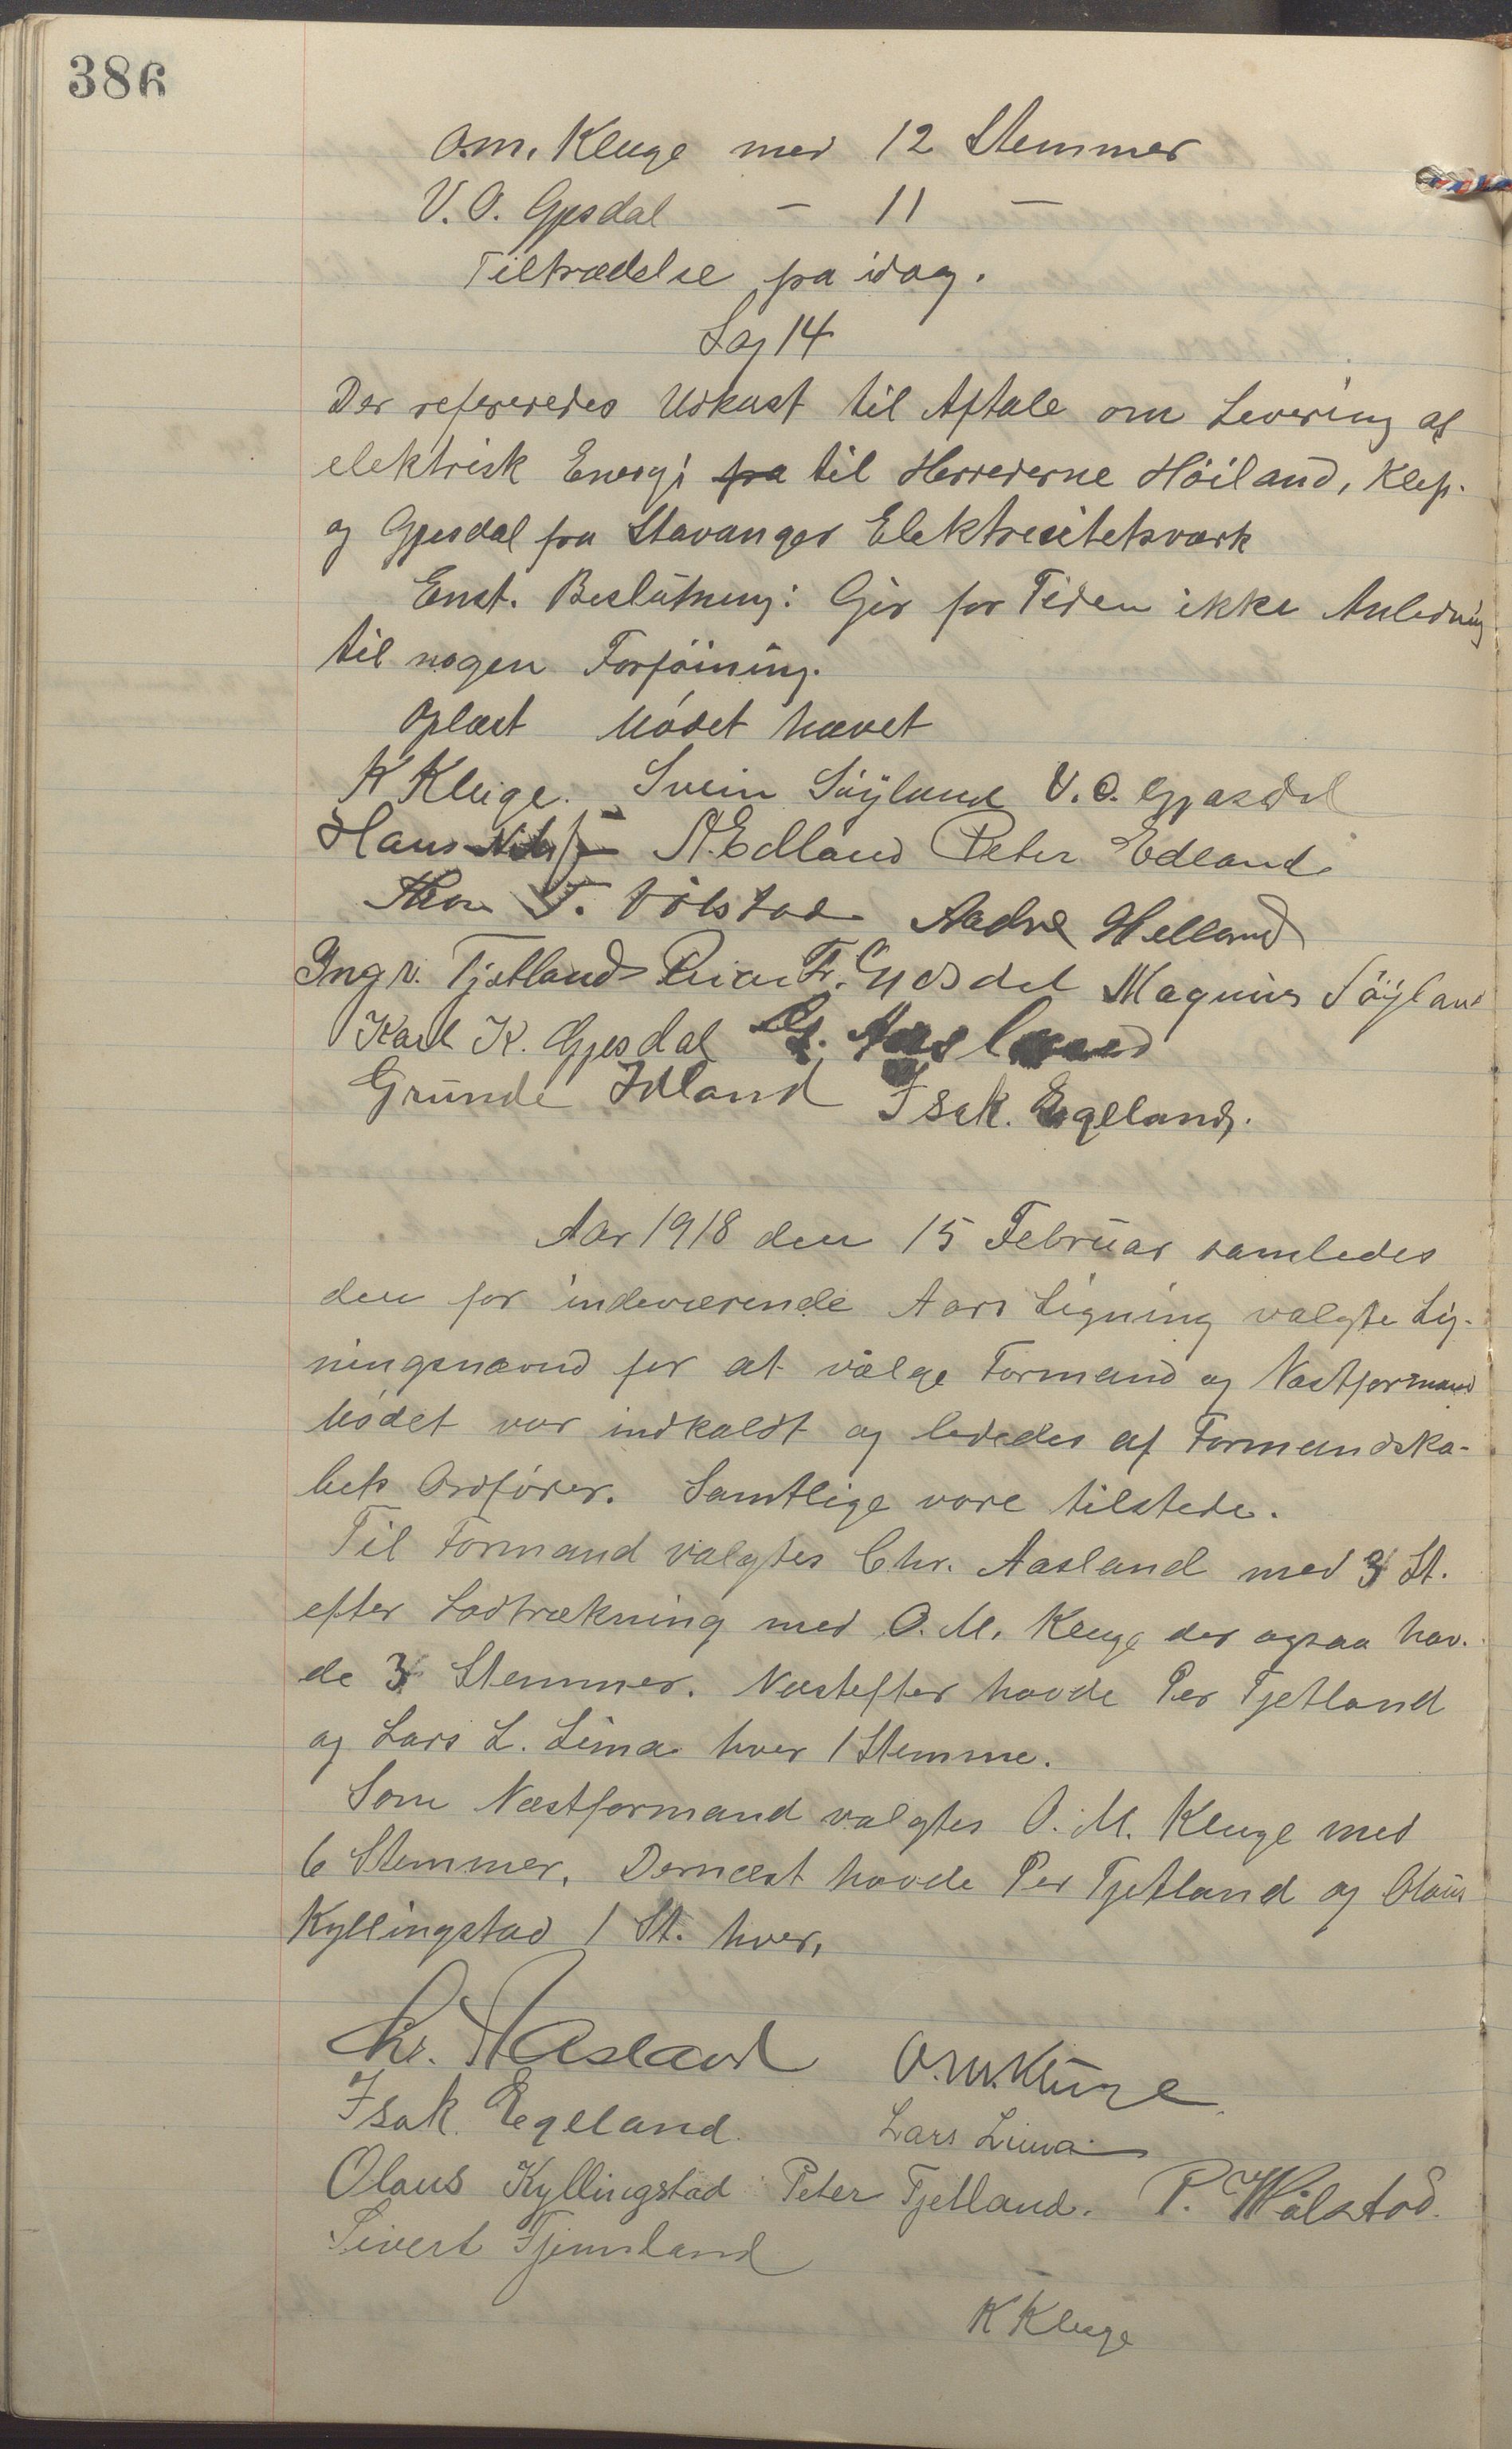 386
O.m. Kluge med 12 Stemmer
V. O. Gjesdal – 11 –
Tiltrædelse fra idag.
Sag 14
Der refereredes Udkast til Aftale om Levering af
elektrisk Energi fra til Herrederne Höiland, Klep.
og Gjesdal fra Stavanger Elektricitetsværk
Enst. Beslutning: Gir for Tiden ikke Anledning
til nogen Forføining.
Oplæst Mødet hævet
K Kluge. Svein Söyland V. O. Gjesdal
Hans A. Edland Peter Edland
T. Vølstad Aadne Helland
Ingv. Tjetland Fr. Gjesdal Magnus Söyland
Karl K. Gjesdal Aasland
Grunde Idland Isak. Egeland.
Aar 1918 den 15 Februar samledes
den for indeværende Aars Ligning valgte Lig-
ningsnævnd for at vælge Formand og Næstformand
Mødet var indkaldt og lededes af Formandska-
bets Ordfører. Samtlige vare tilstede.
Til Formand valgtes Chr. Aasland med 3 St.
efter Lodtrækning med O. M. Kluge der ogsaa hav-
de 3 Stemmer. Næstefter havde Per Tjetland
og Lars L. Lima hver 1 Stemme.
Som Næstformand valgtes O. M. Kluge med
6 Stemmer. Dernæst havde Per Tjetland og Olaus
Kyllingstad 1 St. hver.
Chr. Aasland O. M. Kluge
Isak. Egeland. Lars Lima
Olaus Kyllingstad Peter Tjetland. P. Wølstad.
Sivert Fjermland
K Kluge